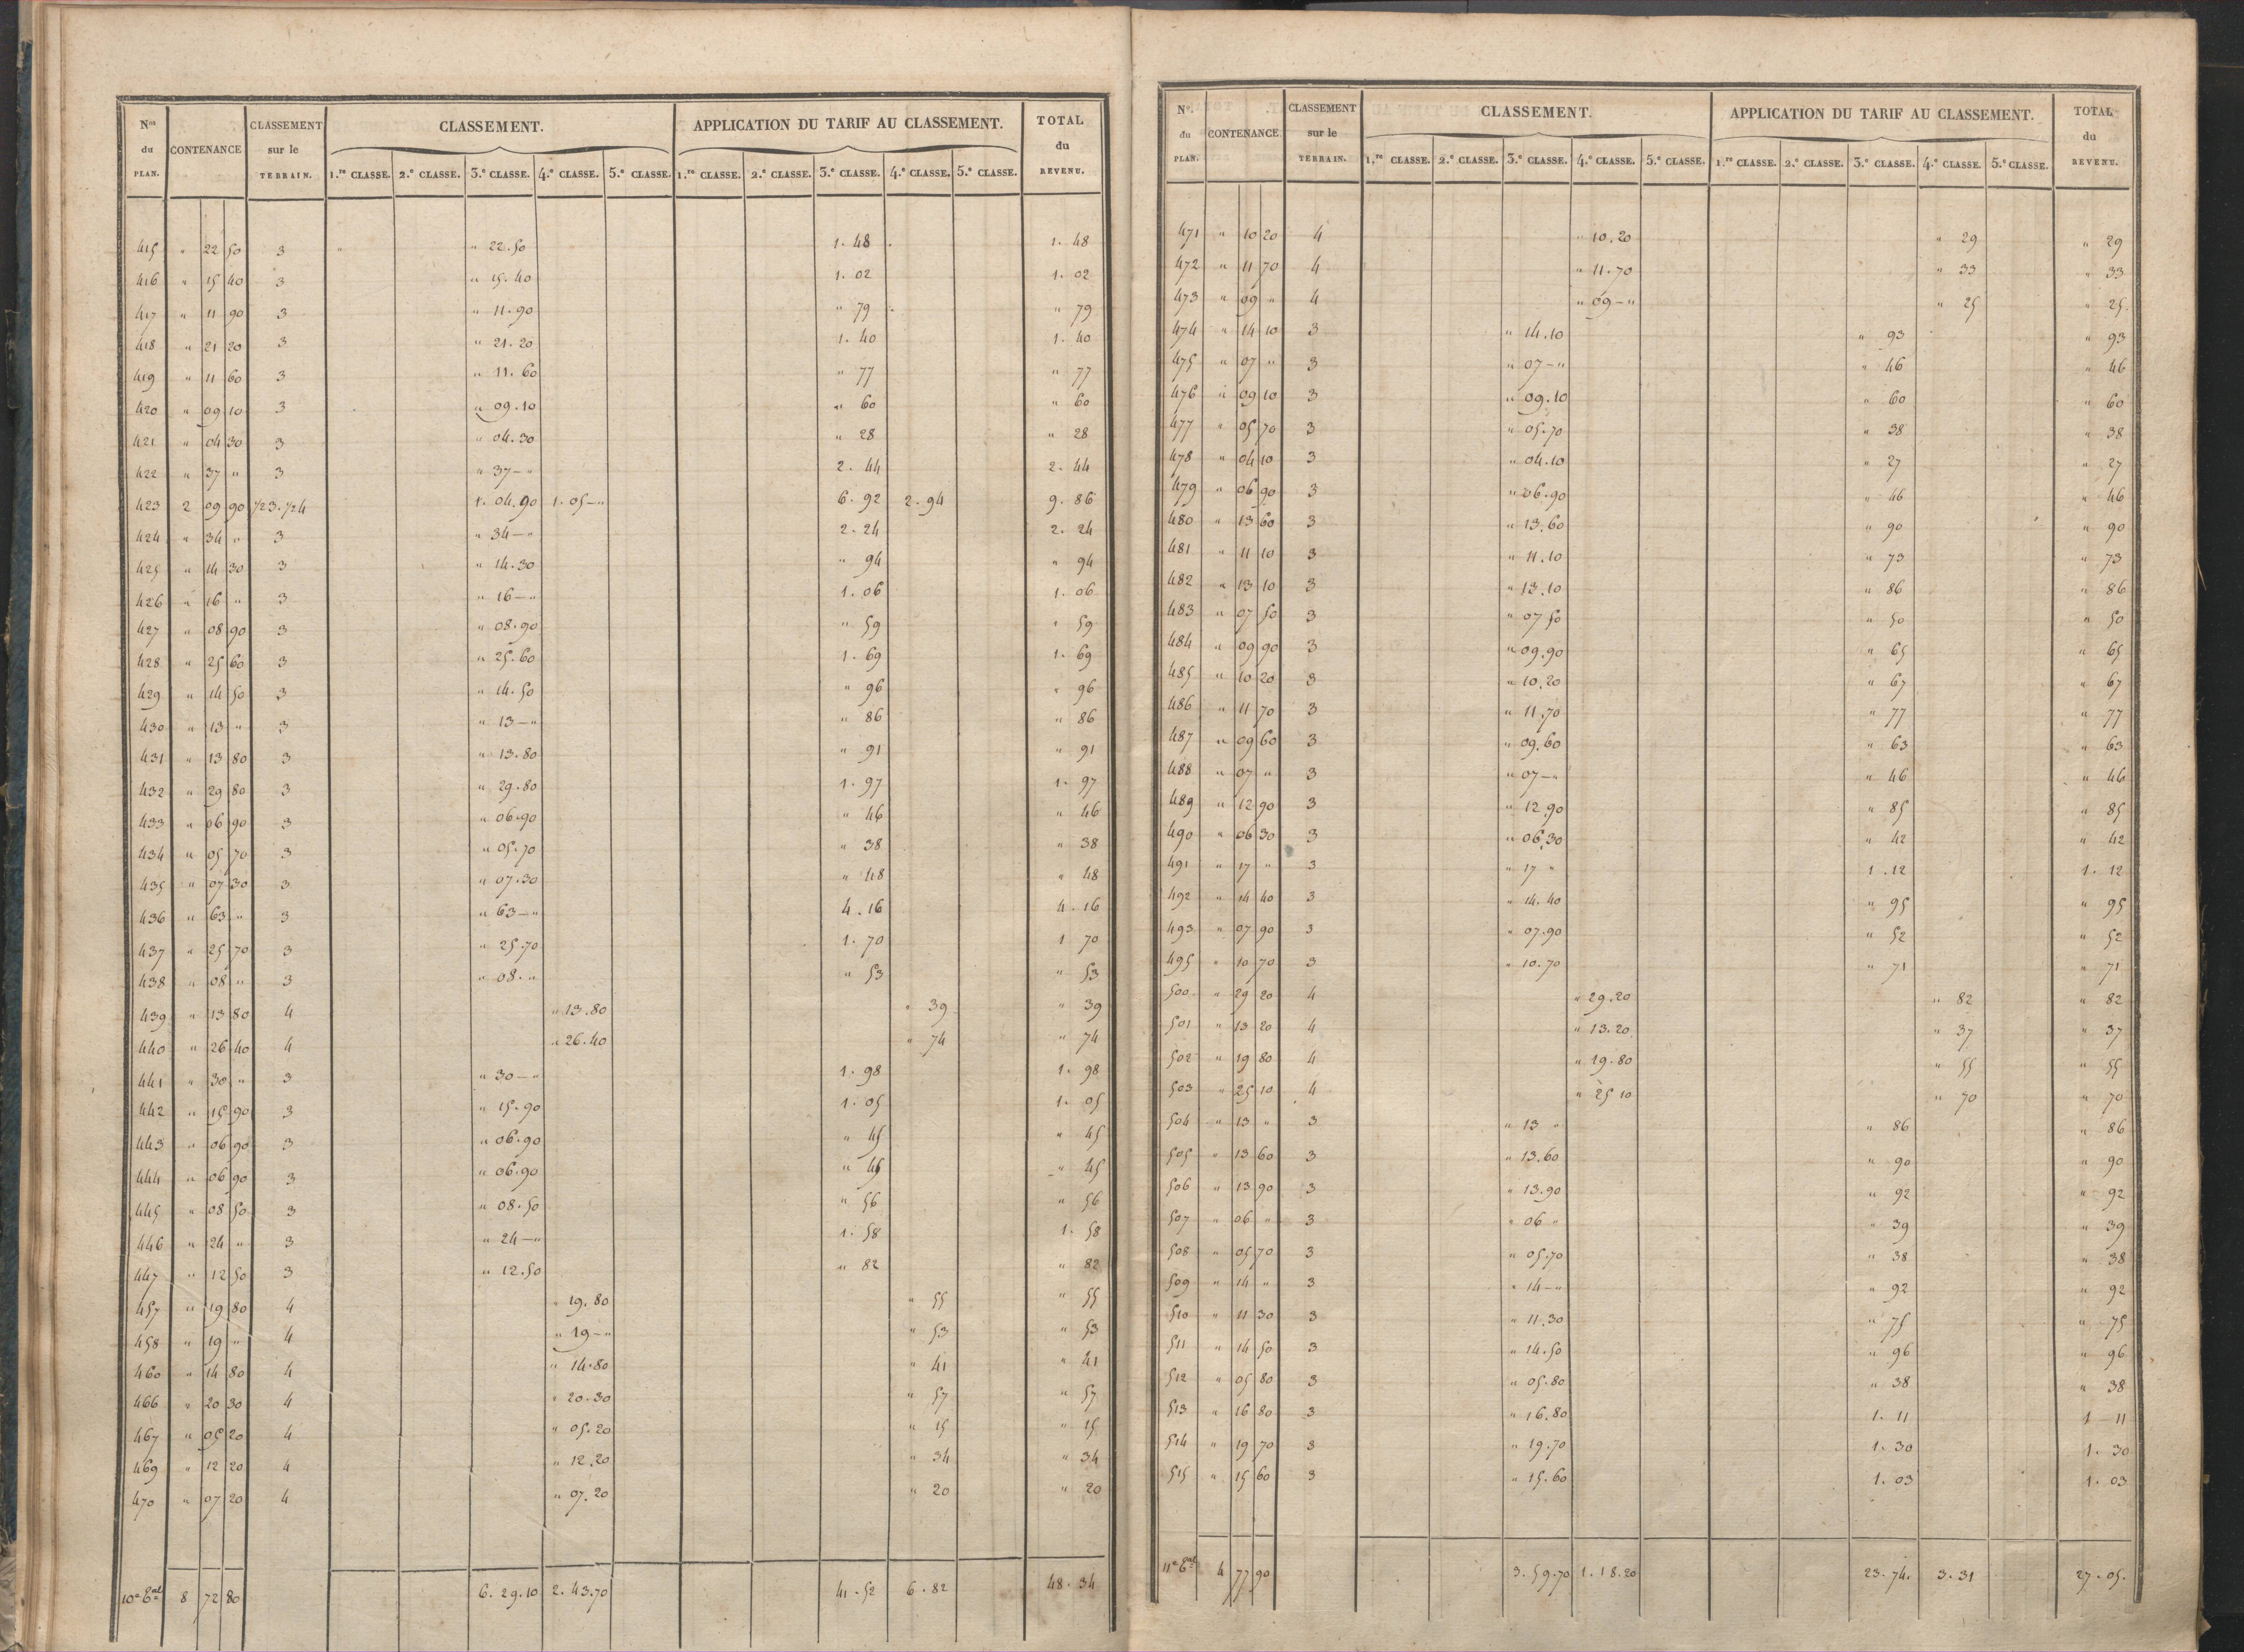 Nos du PLAN. CONTENANCE CLASSEMENT sur le TERRAIN. CLASSEMENT. APPLICATION DU TARIF AU CLASSEMENT. TOTAL du REVENU.
1.re CLASSE. 2.e CLASSE. 3.e CLASSE. 4.e CLASSE. 5.e CLASSE. 1.re CLASSE. 2.e CLASSE. 3.e CLASSE. 4.e CLASSE. 5.e CLASSE.
415 " 22 50 3 " " 22.50 1. 48 1. 48
416 " 15 40 3 " 15.40 1. 02 1. 02
417 " 11 90 3 " 11.90 " 79 " 79
418 " 21 20 3 " 21.20 1. 40 1. 40
419 " 11 60 3 " 11.60 " 77 " 77
420 " 09 10 3 " 09.10 " 60 " 60
421 " 04 30 3 " 04.30 " 28 " 28
422 " 37 " 3 " 37 - " 2. 44 2. 44
423 2 09 90 1/2 3. 1/2 4 1. 04.90 1. 05 - " 6. 92 2. 94 9. 86
424 " 34 " 3 " 34 - " 2. 24 2. 24
425 " 14 30 3 " 14.30 " 94 " 94
426 " 16 " 3 " 16 - " 1. 06 1. 06
427 " 08 90 3 " 08.90 " 59 " 59
428 " 25 60 3 " 25.60 1. 69 1. 69
429 " 14 50 3 " 14.50 " 96 " 96
430 " 13 " 3 " 13 - " " 86 " 86
431 " 13 80 3 " 13.80 " 91 " 91
432 " 29 80 3 " 29.80 1. 97 1. 97
433 " 06 90 3 " 06.90 " 46 " 46
434 " 05 70 3 " 05.70 " 38 " 38
435 " 07 30 3 " 07.30 " 48 " 48
436 " 63 " 3 " 63 - " 4. 16 4. 16
437 " 25 70 3 " 25.70 1. 70 1 70
438 " 08 " 3 " 08. " " 53 " 53
439 " 13 80 4 " 13.80 " 39 " 39
440 " 26 40 4 " 26.40 " 74 " 74
441 " 30 " 3 " 30 - " 1. 98 1. 98
442 " 15 90 3 " 15.90 1. 05 1. 05
443 " 06 90 3 " 06.90 " 45 " 45
444 " 06 90 3 " 06.90 " 45 " 45
445 " 08 50 3 " 08.50 " 56 " 56
446 " 24 " 3 " 24 - " 1. 58 1. 58
447 " 12 50 3 " 12.50 " 82 " 82
457 " 19 80 4 " 19.80 " 55 " 55
458 " 19 " 4 " 19 - " " 53 " 53
460 " 14 80 4 " 14.80 " 41 " 41
466 " 20 30 4 " 20.30 " 57 " 57
467 " 05 20 4 " 05.20 " 15 " 15
469 " 12 20 4 " 12.20 " 34 " 34
470 " 07 20 4 " 07.20 " 20 " 20
10e Eal 8 72 80 6. 29.10 2. 43.70 41. 52 6. 82 48. 34
Nos. du PLAN. CONTENANCE CLASSEMENT sur le TERRAIN. CLASSEMENT. APPLICATION DU TARIF AU CLASSEMENT. TOTAL du REVENU.
1.re CLASSE. 2.e CLASSE. 3.e CLASSE. 4.e CLASSE. 5.e CLASSE. 1.re CLASSE. 2.e CLASSE. 3.e CLASSE. 4.e CLASSE. 5.e CLASSE.
471 " 10 20 4 " 10.20 " 29 " 29
472 " 11 70 4 " 11.70 " 33 " 33
473 " 09 " 4 " 09 - " " 25 " 25
474 " 14 10 3 " 14.10 " 93 " 93
475 " 07 " 3 " 07 - " " 46 " 46
476 " 09 10 3 " 09.10 " 60 " 60
477 " 05 70 3 " 05.70 " 38 " 38
478 " 04 10 3 " 04.10 " 27 " 27
479 " 06 90 3 " 06.90 " 46 " 46
480 " 13 60 3 " 13.60 " 90 " 90
481 " 11 10 3 " 11.10 " 73 " 73
482 " 13 10 3 " 13.10 " 86 " 86
483 " 07 50 3 " 07 50 " 50 " 50
484 " 09 90 3 " 09.90 " 65 " 65
485 " 10 20 3 " 10.20 " 67 " 67
486 " 11 70 3 " 11.70 " 77 " 77
487 " 09 60 3 " 09.60 " 63 " 63
488 " 07 " 3 " 07 - " " 46 " 46
489 " 12 90 3 " 12.90 " 85 " 85
490 " 06 30 3 " 06.30 " 42 " 42
491 " 17 " 3 " 17 " 1. 12 1. 12
492 " 14 40 3 " 14.40 " 95 " 95
493 " 07 90 3 " 07.90 " 52 " 52
495 " 10 70 3 " 10.70 " 71 " 71
500 " 29 20 4 " 29.20 " 82 " 82
501 " 13 20 4 " 13.20 " 37 " 37
502 " 19 80 4 " 19.80 " 55 " 55
503 " 25 10 4 " 25 10 " 70 " 70
504 " 13 " 3 " 13 " " 86 " 86
505 " 13 60 3 " 13.60 " 90 " 90
506 " 13 90 3 " 13.90 " 92 " 92
507 " 06 " 3 " 06 " " 39 " 39
508 " 05 70 3 " 05.70 " 38 " 38
509 " 14 " 3 " 14 - " " 92 " 92
510 " 11 30 3 " 11.30 " 75 " 75
511 " 14 50 3 " 14.50 " 96 " 96
512 " 05 80 3 " 05.80 " 38 " 38
513 " 16 80 3 " 16.80 1. 11 1 11
514 " 19 70 3 " 19.70 1. 30 1. 30
515 " 15 60 3 " 15.60 1. 03 1. 03
11e Eal 4 77 90 3. 59.70 1. 18.20 23. 74. 3. 31 27. 05.